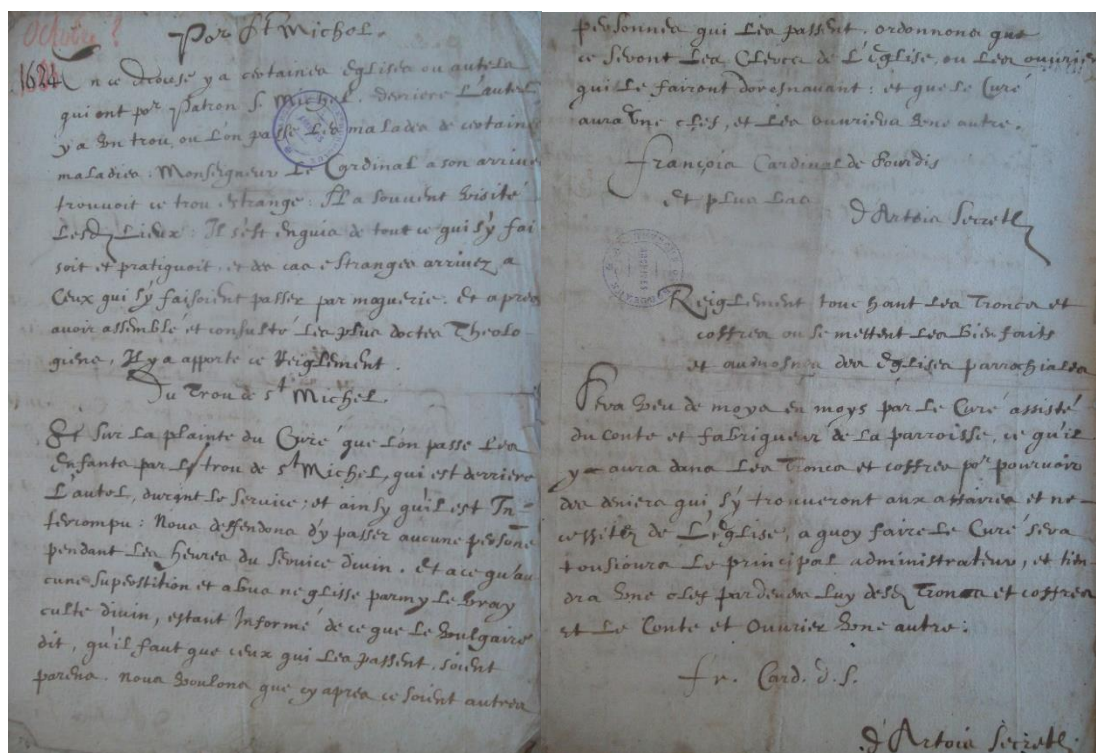 Octobre ?
Por St Michel.
1624 En ce diocese y a certaines Eglises ou autels
qui ont por Patron St Michel. derriere L'autel
y a Un trou, ou L'on passe Les malades de certaines
maladies: Monseigneur Le Cardinal a son arrivee
trouvoit ce trou estrange: Il a souvent visité
Lesdz Lieux: Il s'est enquis de tout ce qui s'y fai
soit et pratiquoit, et des cas estranges arrivez a
Ceux qui s'y faisoient passer par moquerie. Et apres
avoir assemblé et consulté Les plus doctes Theolo
giens, Il y a apporté ce Reiglement.
Du Trou de st Michel.
Et sur la plainte du Curé que L'on passe Les
Enfants par Le trou de st Michel, qui est derriere
L'autel, durant Le Service; et ainsy qu'il est In=
terrompu: Nous deffendons d'y passer aucune persone
pendant Les heures du Service divin. Et a ce qu'au
cune Superstition et abus ne glisse parmy Le vray
culte divin, estant Informé de ce que Le Vulgaire
dit, qu'il faut que ceux qui Les passent, soient
parens. Nous voulons que cy apres ce soient autres
personnes qui Les passent. ordonnons que
ce seront Les Clercs de L'Eglise, ou Les ouvriers
qui Le fairont doresnavant: et que Le Curé
aura Une clef, et Les ouvriers Une autre.
François Cardinal de Sourdis
Et plus bas
d'Artois Secretz
Reiglement touchant Les Troncs et
coffres ou se mettent Les bienfaits
et aumosnes des Eglises parrochiales
Sera veu de moys en moys par Le Curé assisté
du Conte et fabriqueur de La parroisse, ce qu'il
y aura dans Les Troncs et coffres por pourvoir
des deniers qui s'y trouveront aux affaires et ne
cessitez de L'Eglise, a quoy faire Le Curé sera
tousiours Le principal administrateur, et tien
dra Une clef pardevers Luy desdz Troncs et coffres
et Le Conte et Ouvrier Une autre:
fr. Card. d. S.
d'Artois Secretz.